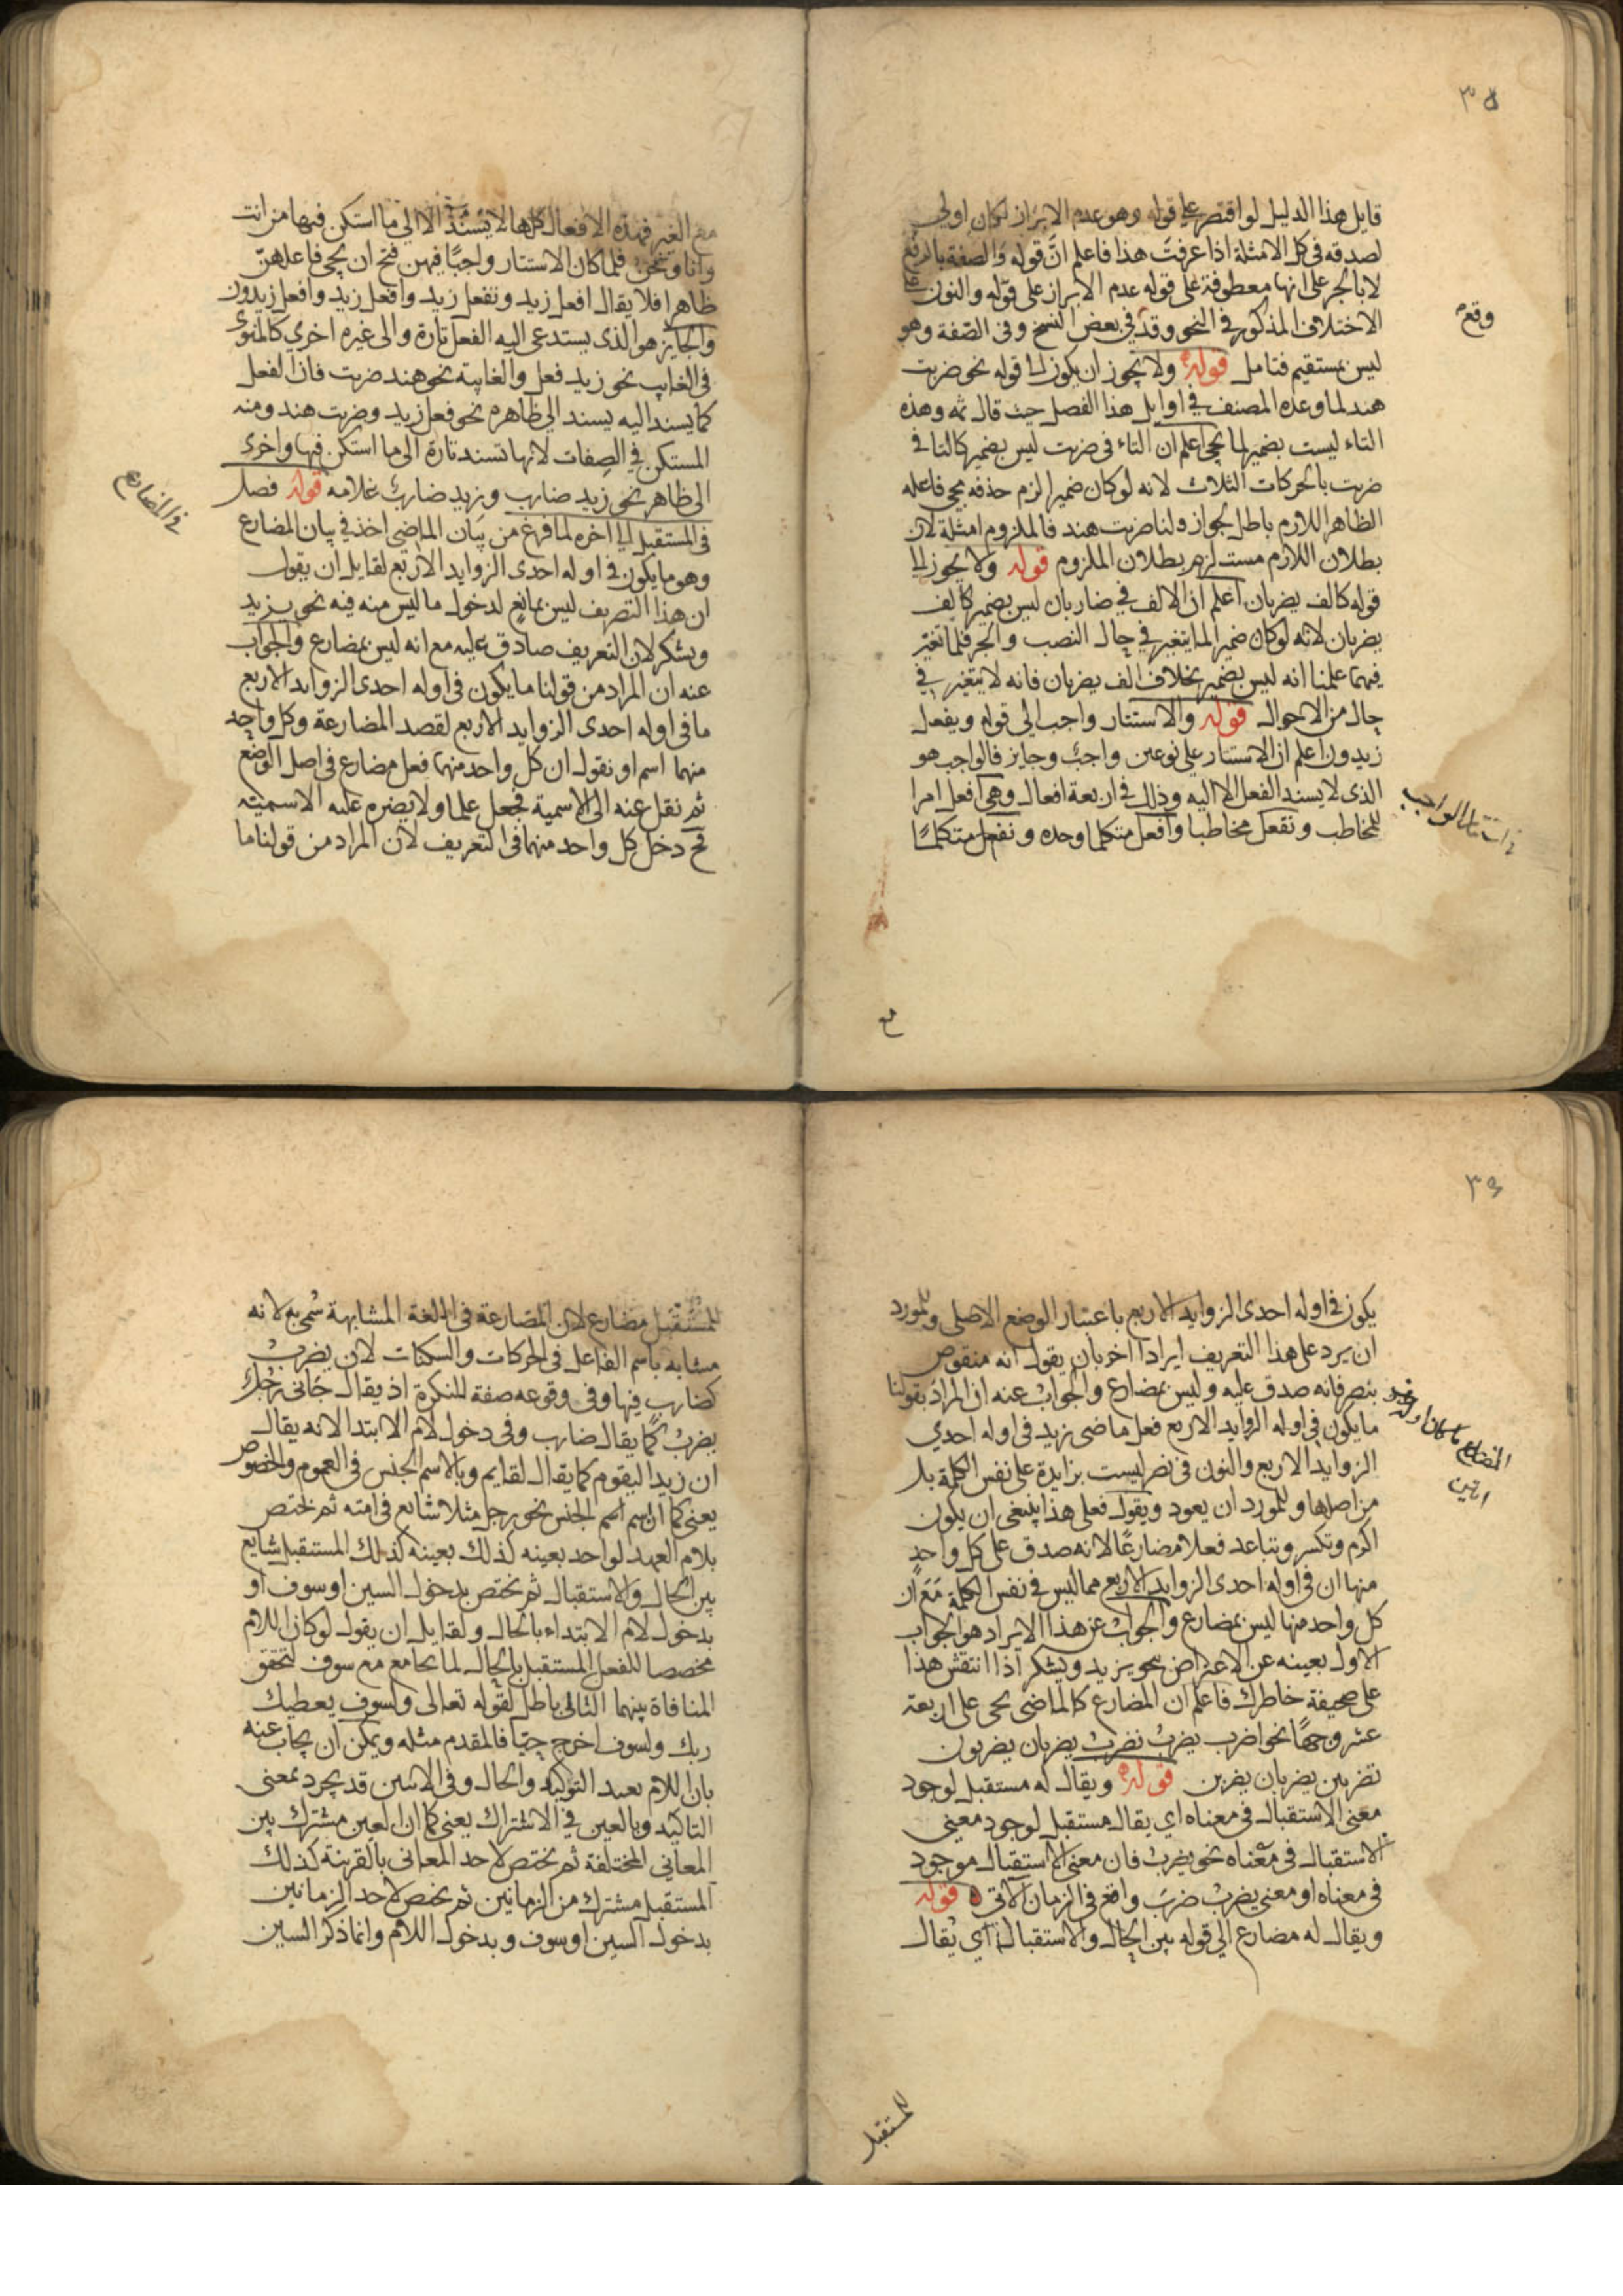 ٣٥
قايل هذا الدليل لو اقتصر على قوله وهو عدم الابراز لكان اولى
لصدقه فى كل الامثلة اذا عرفت هذا فاعلم انّ قوله والصفة بالرفع
لا بالجر على انها معطوفة على قوله عدم الابراز على قوله والنون على
الاختلاف المذكور فى النحو وقد فى بعض النسخ وفى الصّفة وهو
وقع
ليس بمستقيم فتامل قوله ولا يجوز ان يكون الى قوله نحو ضربت
هند لما وعده المصنف فى اوايل هذا الفصل حيث قال ثمه وهذه
التاء ليست بضمير لما يجى اعلم ان التاء فى ضربت ليس بضمير كالتا فى
ضربت بالحركات الثلاث لانه لو كان ضميرا لزم حذفه بمجى فاعله
الظاهر اللازم باطل لجواز ولنا ضربت هند فالملزوم امثلة لان
بطلان اللازم مستلزم بطلان الملزوم قوله ولا يجوز الى
قوله كالف يضربان اعلم ان الالف فى ضاربان ليس بضمير كالف
يضربان لانه لو كان ضميرا لما يتغير فى حال النصب والجر فلما تغيّر
فيهما علمنا انه ليس بضمير بخلاف الف يضربان فانه لا يتغير فى
حال من الاحوال قوله والاستتار واجب الى قوله ويفعل
زيدون اعلم ان الاستتار على نوعين واجب وجايز فالواجب هو
الذى لا يسند الفعل الا اليه وذلك فى اربعة افعال وهى افعل امرا
للمخاطب وتفعل مخاطبا وافعل متكلما وحده ونفعل متكلمًا
مع
مع الغير فهذه الافعال كلها لا يسند الا الى ما استكن فيها من انت
وانا ونحن فلما كان الاستتار واجبًا فيهن فتح ان يجى فاعلهنّ
ظاهرا فلا يقال افعل زيد وتفعل زيد وافعل زيد وافعل زيدون
والجايز هو الذى يستدعى اليه الفعل تارة والى غيره اخرى كالمنوى
فى الغايب نحو زيد فعل والغايبة نحو هند ضربت فان الفعل
كما يسند اليه يسند الى ظاهره نحو فعل زيد وضربت هند ومنه
المستكن فى الصفات لانها تسند تارة الى ما استكن فيها واخرى
الى ظاهر نحو زيد ضارب وزيد ضارب غلامه قوله فصل
فى المضارع
فى المستقبل الى اخره لما فرغ من بيان الماضى اخذ فى بيان المضارع
وهو ما يكون فى اوله احدى الزوايد الاربع لقايل ان يقول
ان هذا التعريف ليس بمانع لدخول ما ليس منه فيه نحو يزيد
ويشكر لان التعريف صادق عليه مع انه ليس بمضارع والجواب
عنه ان المراد من قولنا ما يكون فى اوله احدى الزوايد الاربع
ما فى اوله احدى الزوايد الاربع لقصد المضارعة وكل واحد
منهما اسم او نقول ان كل واحد منهما فعل مضارع فى اصل الوضع
ثم نقل عنه الى الاسمية فجعل علما ولا يضره عليه الاسمية
فح دخل كل واحد منهما فى التعريف لان المراد من قولنا ما
٣٦
يكون فى اوله احدى الزوايد الاربع باعتبار الوضع الاصلى وللمورد
ان يرد على هذا التعريف ايرادا اخر بان يقول انه منقوض
بنصر فانه صدق عليه وليس بمضارع والجواب عنه ان المراد بقولنا
ما يكون فى اوله الزوايد الاربع فعل ماضى زيد فى اوله احدى
الزوايد الاربع والنون فى نصر ليست بزايدة على نفس الكلمة بل
من اصلها وللمورد ان يعود ويقول فعلى هذا ينبغى ان يكون
اكرم وتكسر وتباعد فعلا مضارعًا لانه صدق على كل واحدٍ
منها ان فى اوله احدى الزوايد الاربع مما ليس فى نفس الكلمة مع ان
كل واحد منها ليس بمضارع والجواب عن هذا الايراد هو الجواب
الاول بعينه عن الاعتراض بنحو يزيد ويشكر اذا انتقش هذا
على صحيفة خاطرك فاعلم ان المضارع كالماضى يجى على اربعة
عشر وجهًا نحو اضرب يضرب نضرب يضربان يضربون
تضربين يضربان يضربن قوله ويقال له مستقبل لوجود
معنى الاستقبال فى معناه اى يقال مستقبل لوجود معنى
الاستقبال فى معناه نحو يضرب فان معنى الاستقبال موجود
فى معناه او معنى يضرب ضرب واقع فى الزمان الآتى قوله
ويقال له مضارع الى قوله بين الحال والاستقبال اى يقال
للمستقبل
للمستقبل مضارع لان المضارعة فى اللغة المشابهة سُمى به لانه
مشابه باسم الفاعل فى الحركات والسكنات لان يضرب
كضارب فيها وفى وقوعه صفة للنكرة اذ يقال جانى رجل
يضرب كما يقال ضارب وفى دخول لام الابتدا لانه يقال
ان زيدا ليقوم كما يقال لقايم وبالاسم الجنس فى العموم والخصوص
يعنى كما ان اسم الجنس نحو رجل مثلا شايع فى امته ثم يختص
بلام العهد لواحد بعينه كذلك بعينه كذلك المستقبل شايع
بين الحال والاستقبال ثم يختص بدخول السين او سوف او
بدخول لام الابتداء بالحال ولقايل ان يقول لو كان اللام
مخصصا للفعل المستقبل بالحال لما يجامع مع سوف لتحقق
المنافاة بينهما التالى باطل لقوله تعالى ولسوف يعطيك
ربك ولسوف اخرج حيّا فالمقدم مثله ويمكن ان يجاب عنه
بان اللام يفيد التوكيد والحال وفى الاسين قد يجرد بمعنى
التاكيد وبالعين فى الاشتراك يعنى كما ان العين مشترك بين
المعانى المختلفة ثم يختص لاحد المعانى بالقرينة كذلك
المستقبل مشترك من الزمانين ثم يخص لاحد الزمانين
بدخول السين او سوف وبدخول اللام وانما ذكر السين